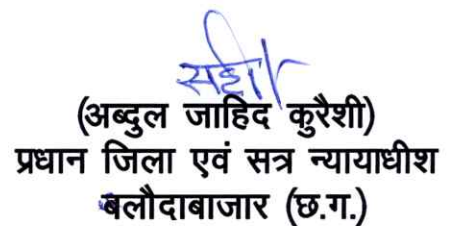 सही/-
(अब्दुल जाहिद कुरैशी)
प्रधान जिला एवं सत्र न्यायाधीश
बलौदाबाजार (छ.ग.)